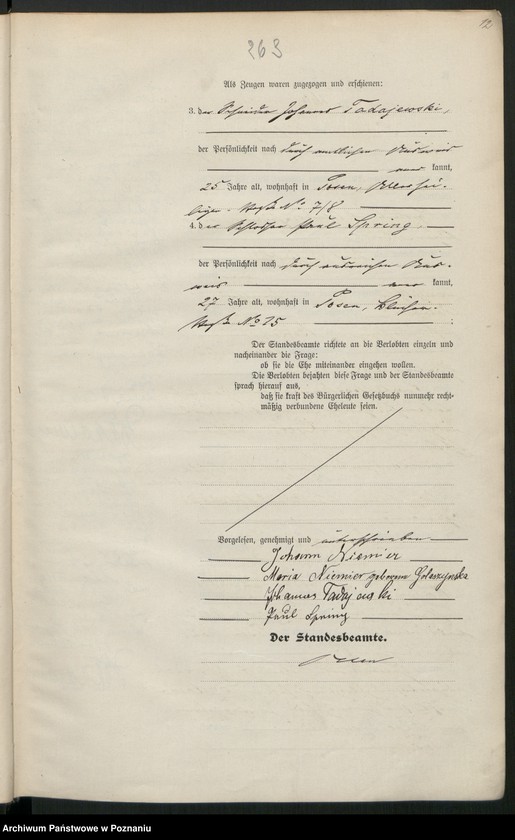 12
263
Als Zeugen waren zugezogen und erschienen:
3. der Schneider Johannes Tadajewski,
der Persönlichkeit nach durch amtlichen Ausweis
aner kannt,
25 Jahre alt, wohnhaft in Posen, Allerhei-
ligen-Straße No 7/8
4. der Schlosser Paul Spring
der Persönlichkeit nach durch Aus-
weis aner kannt,
27 Jahre alt, wohnhaft in Posen,
Straße No 15 ;
Der Standesbeamte richtete an die Verlobten einzeln und
nacheinander die Frage:
ob sie die Ehe miteinander eingehen wollen.
Die Verlobten bejahten diese Frage und der Standesbeamte
sprach hierauf aus,
daß sie kraft des Bürgerlichen Gesetzbuchs nunmehr recht-
mäßig verbundene Eheleute seien.
Vorgelesen, genehmigt und unterschrieben
Johann Niemier
Maria Niemier geborene Golaszynska
Johannes Tadajewski
Paul Spring
Der Standesbeamte.
Archiwum Państwowe w Poznaniu